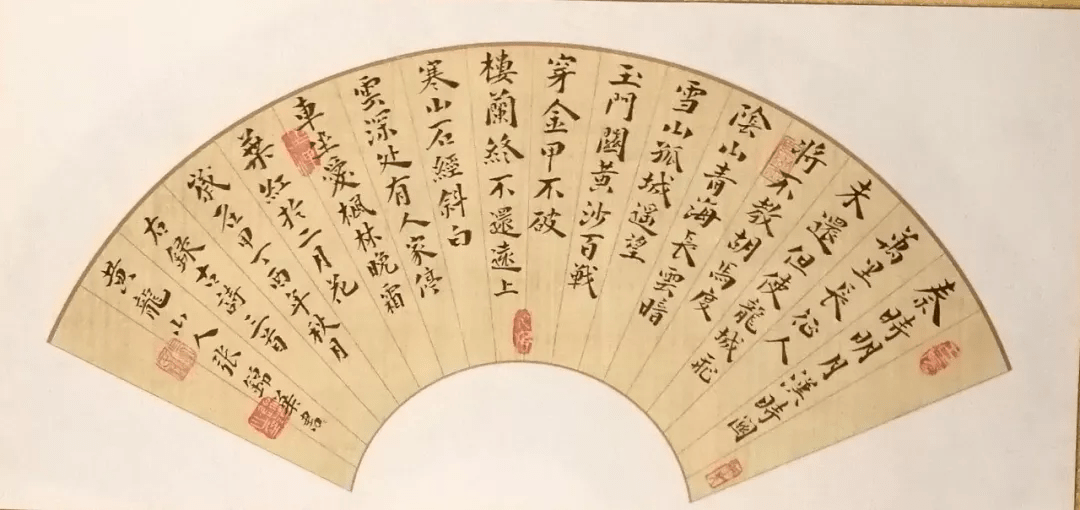 秦時明月漢時關
萬里長征人
未還但使龍城飛
將不教胡馬度
陰山青海長雲暗
雪山孤城遥望
玉門關黃沙百戰
穿金甲不破
樓蘭終不還遠上
寒山石經斜白
雲深处有人家停
車坐愛楓林晚霜
葉紅於二月花
歲在甲丁酉年秋月
右錄古詩三首
黃龍山人张銘華書